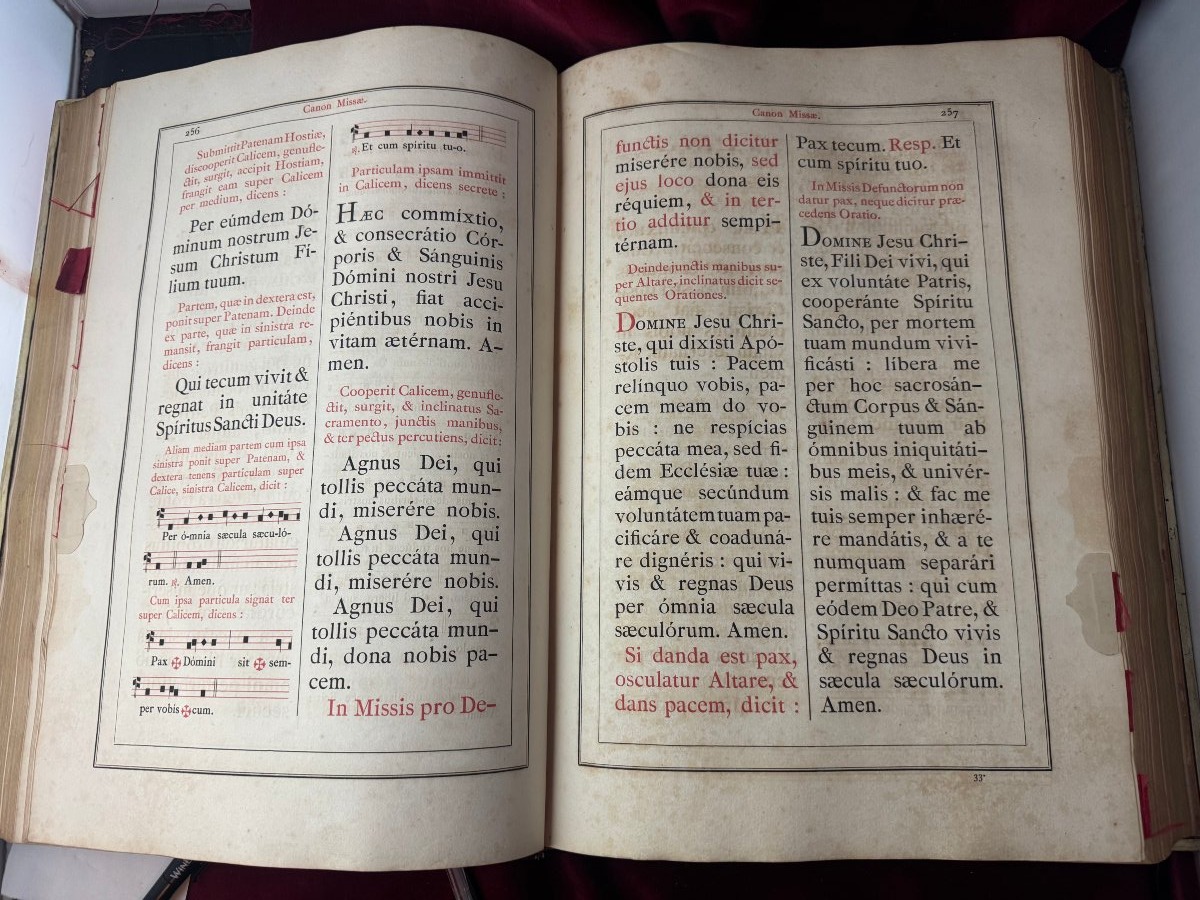 256
Canon Missæ.
Submittit Patenam Hostiæ,
discooperit Calicem, genufle-
ctit, surgit, accipit Hostiam,
frangit eam super Calicem
per medium, dicens :
Per eúmdem Dó-
minum nostrum Je-
sum Christum Fí-
lium tuum.
Partem, quæ in dextera est,
ponit super Patenam. Deinde
ex parte, quæ in sinistra re-
mansit, frangit particulam,
dicens :
Qui tecum vivit &
regnat in unitáte
Spíritus Sancti Deus.
Aliam mediam partem cum ipsa
sinistra ponit super Patenam, &
dextera tenens particulam super
Calice, sinistra Calicem, dicit :
Per ó-mnia sæcula sæcu-ló-
rum. ℟. Amen.
Cum ipsa particula signat ter
super Calicem, dicens :
Pax ✠ Dómini sit ✠ sem-
per vobis ✠ cum.
℟. Et cum spíritu tu-o.
Particulam ipsam immittit
in Calicem, dicens secrete :
HÆC commíxtio,
& consecrátio Cór-
poris & Sánguinis
Dómini nostri Jesu
Christi, fiat acci-
piéntibus nobis in
vitam ætérnam. A-
men.
Cooperit Calicem, genufle-
ctit, surgit, & inclinatus Sa-
cramento, junctis manibus,
& ter pectus percutiens, dicit:
Agnus Dei, qui
tollis peccáta mun-
di, miserére nobis.
Agnus Dei, qui
tollis peccáta mun-
di, miserére nobis.
Agnus Dei, qui
tollis peccáta mun-
di, dona nobis pa-
cem.
In Missis pro De-
Canon Missæ.
257
functis non dicitur
miserére nobis, sed
ejus loco dona eis
réquiem, & in ter-
tio additur sempi-
térnam.
Deinde junctis manibus su-
per Altare, inclinatus dicit se-
quentes Orationes.
DOMINE Jesu Chri-
ste, qui dixísti Apó-
stolis tuis : Pacem
relínquo vobis, pa-
cem meam do vo-
bis : ne respícias
peccáta mea, sed fi-
dem Ecclésiæ tuæ :
eámque secúndum
voluntátem tuam pa-
cificáre & coaduná-
re dignéris : qui vi-
vis & regnas Deus
per ómnia sæcula
sæculórum. Amen.
Si danda est pax,
osculatur Altare, &
dans pacem, dicit :
Pax tecum. Resp. Et
cum spíritu tuo.
In Missis Defunctorum non
datur pax, neque dicitur præ-
cedens Oratio.
DOMINE Jesu Chri-
ste, Fili Dei vivi, qui
ex voluntáte Patris,
cooperánte Spíritu
Sancto, per mortem
tuam mundum vivi-
ficásti : líbera me
per hoc sacrosán-
ctum Corpus & Sán-
guinem tuum ab
ómnibus iniquitáti-
bus meis, & univér-
sis malis : & fac me
tuis semper inhæré-
re mandátis, & a te
numquam separári
permíttas : qui cum
eódem Deo Patre, &
Spíritu Sancto vivis
& regnas Deus in
sæcula sæculórum.
Amen.
33*